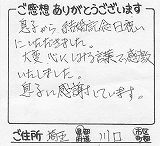 ご感想 ありがとうございます
息子から結婚記念日祝い
にいただきました。
大変 心にしける言葉で感激
いたしました。
息子に感謝しています。
ご住所 埼玉 都道府県 川口 市区町村